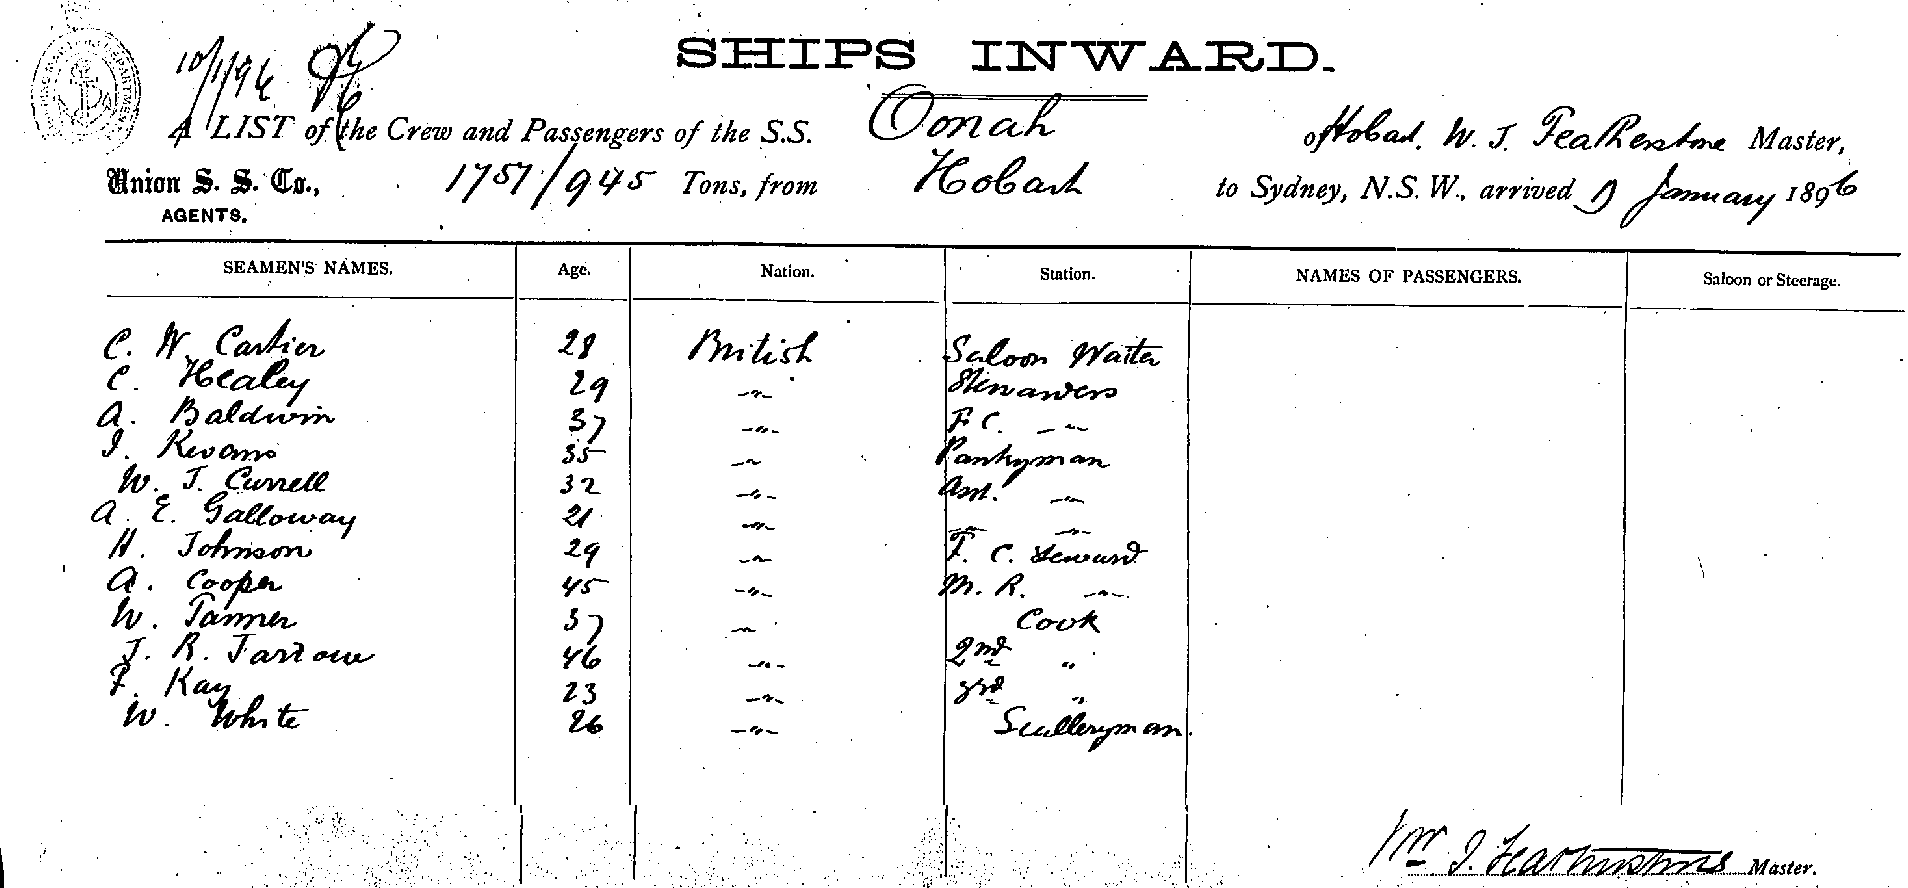 10/1/96
SHIPS INWARD.
A LIST of the Crew and Passengers of the S.S. Oonah of Hobart, W. J. Featherstone Master,
Union S. S. Co., AGENTS. 1757/945 Tons, from Hobart to Sydney, N.S.W., arrived 9 January 1896
SEAMEN'S NAMES. Age. Nation. Station. NAMES OF PASSENGERS. Saloon or Steerage.
C. W. Cartier 28 British Saloon Waiter
C. Healey 29 -"- Stewardess
A. Baldwin 37 -"- F C. -"-
J. Kevans 35 -"- Pantryman
W. J. Currell 32 -"- Asst. -"-
A. E. Galloway 21 -"- -"- -"-
H. Johnson 29 -"- F. C. Steward
A. Cooper 45 -"- M. R. -"-
W. Tanner 37 -"- Cook
J. R. 46 -"- 2nd "
F. Kay 23 -"- 3rd "
W. White 26 -"- Sculleryman.
Wm J. Featherstone Master.